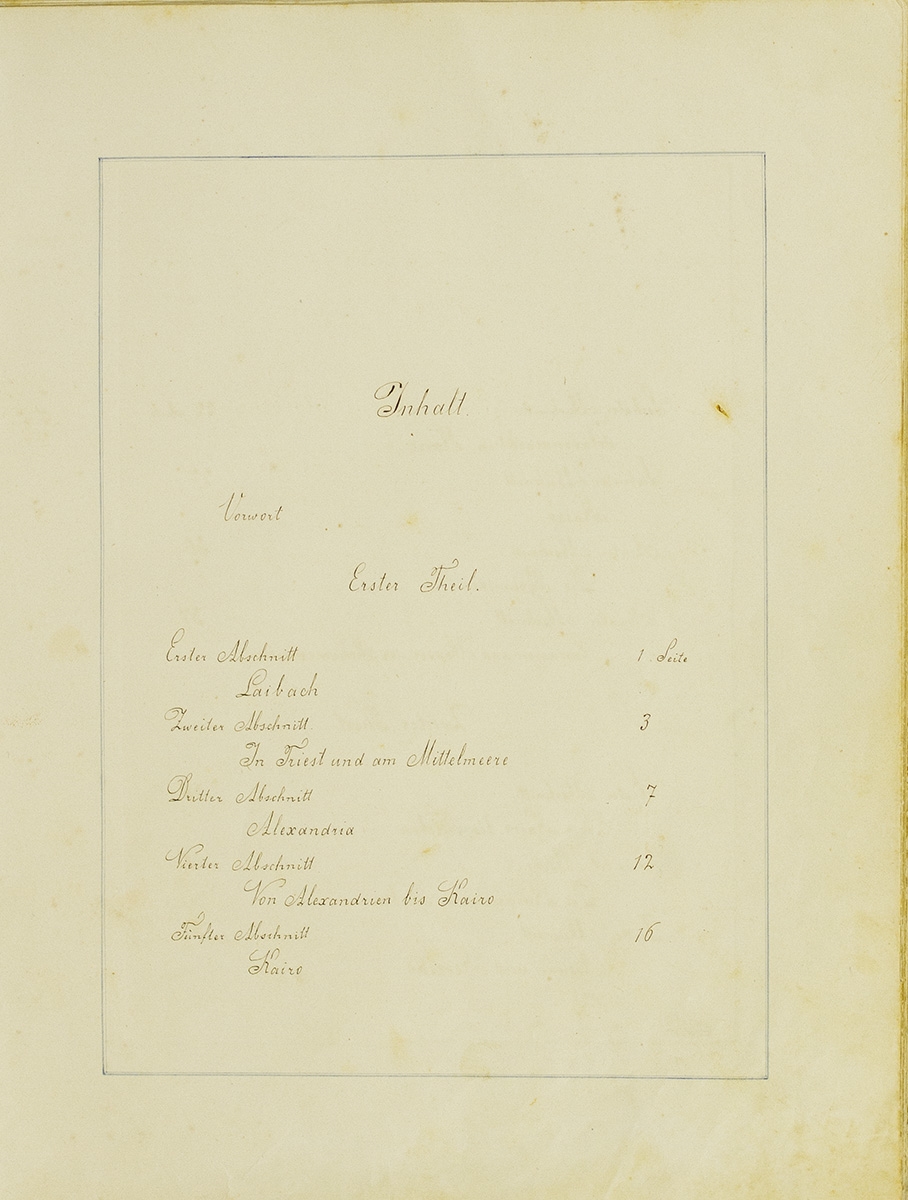 Inhalt.
Vorwort
Erster Theil.
Erster Abschnitt 1. Seite
Laibach
Zweiter Abschnitt. 3
In Triest und am Mittelmeere
Dritter Abschnitt 7
Alexandria
Vierter Abschnitt 12
Von Alexandrien bis Kairo
Fünfter Abschnitt 16
Kairo